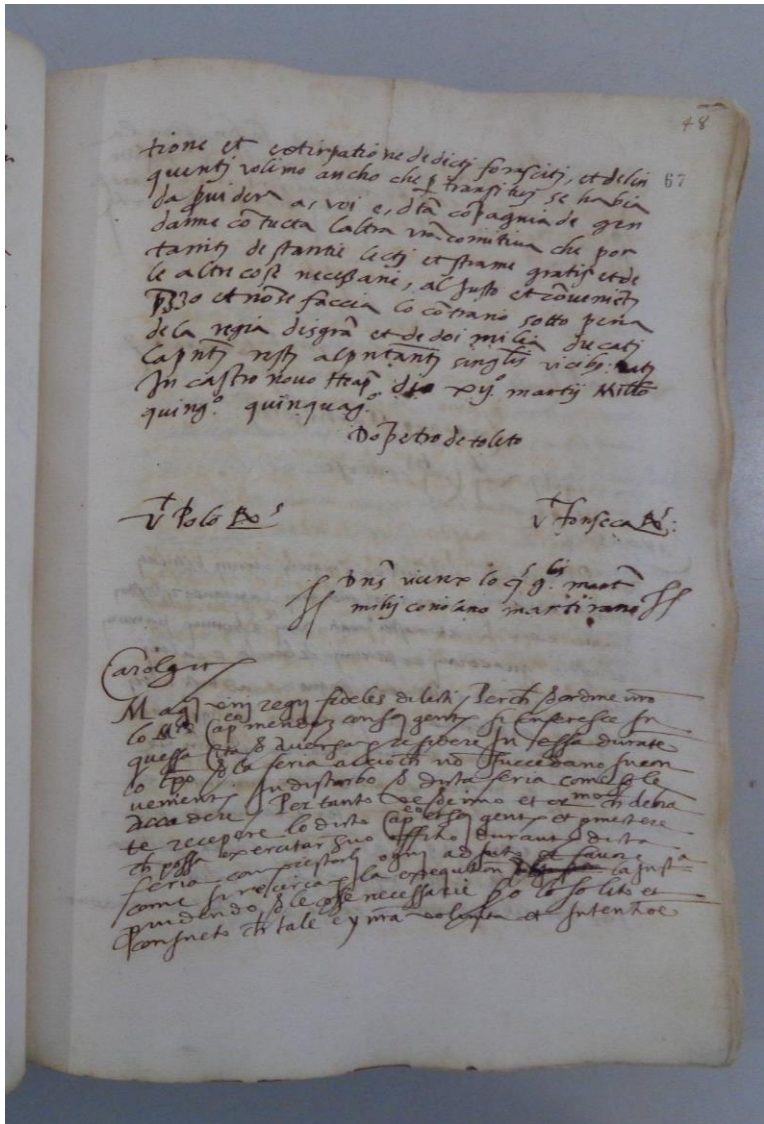 48
67
tione et extirpatione de dicti forasciti, et delin
quenti volimo ancho che p transitu se habia
da pvidere a, voi e, dta copagnia de gen
darme co tucta laltra vra comitiva che por
tariti de stantie lecti et strame gratis et de
le altre cose necessarie, al justo et coveniete
pzzo et no se faccia lo cotrario sotto pena
de la regia disgra et de doi milia ducati
la pnti resti al pntanti singlis vicibs
In castro novo neap xij martij Millo
quingo quinquago
Do petro de toleto
V Polo Rs V Fonseca Rs
Dns vicerex lo
mihi coriolano martirano
Carolus
Magci viri regij fideles dilecti Perche ordine vro
lo capo con soi genti si conferesce in
quessa Cita residere in essa durate
lo tpo de la feria accioche no succedano incon
venienti In disturbo de dicta feria come sole
accadere Per tanto ve dicimo et che debia
te recepere lo dicto capo et soi genti et pmectere
che possa exercitar suo offitio durante dicta
feria con prestarli ogni adjuto et favore
come circa la exeqution la justa
pvidendo de le cose necessarie lo solito et
consueto che tale e, nra volunta et intentioe